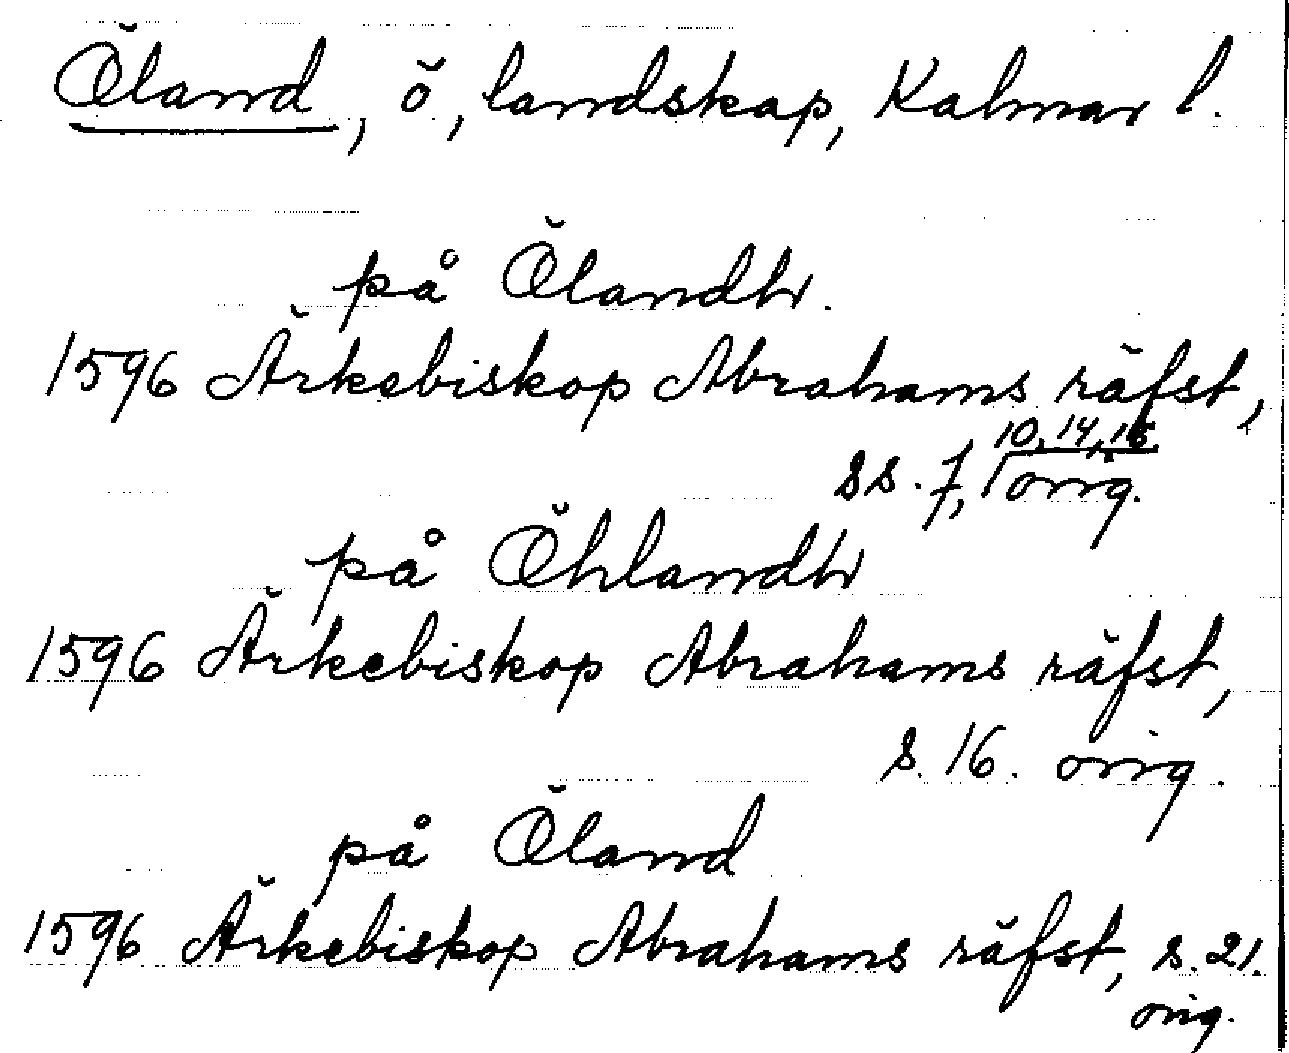 Öland, ö, landskap, Kalmar l.
på Ölandh.
1596 Ärkebiskop Abrahams räfst,
10, 14, 15
ss. 7, orig.
på Öhlandh
1596 Ärkebiskop Abrahams räfst,
s. 16. orig.
på Öland
1596 Ärkebiskop Abrahams räfst, s. 21.
orig.